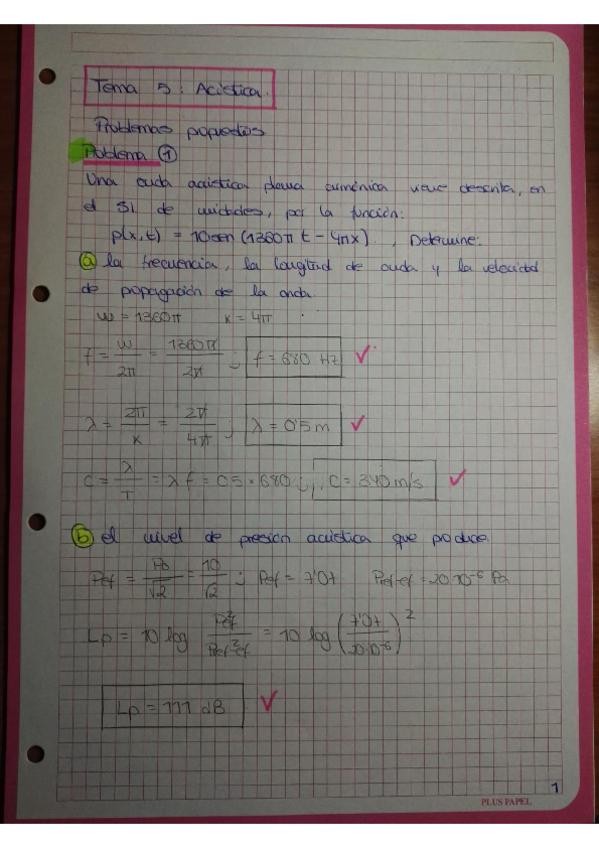 Tema 5: Acústica.
Problemas propuestos
Problema 1
Una onda acústica plana armónica viene descrita, en
el SI de unidades, por la función:
p(x,t) = 10 sen (1360π t - 4πx) , Determine:
a la frecuencia, la longitud de onda y la velocidad
de propagación de la onda.
ω = 1360π K = 4π
f = ω/2π = 1360π/2π ; f = 680 Hz ✓
λ = 2π/K = 2π/4π ; λ = 0'5 m ✓
C = λ/T = λ f = 0'5 · 680 ; C = 340 m/s ✓
b el nivel de presión acústica que produce.
Pef = Po/√2 = 10/√2 ; Pef = 7'07 Pref-ef = 20·10⁻⁶ Pa
Lp = 10 log Pef²/Pref-ef² = 10 log (7'07/20·10⁻⁶)²
Lp = 111 dB ✓
1
PLUS PAPEL